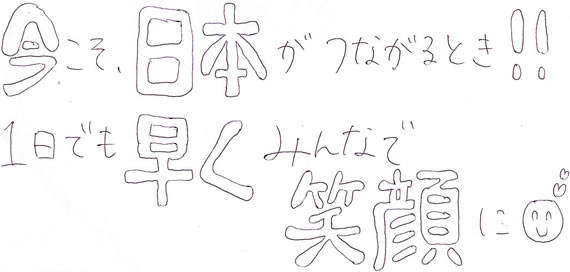 今こそ、日本がつながるとき!!
1日でも早くみんなで
笑顔に